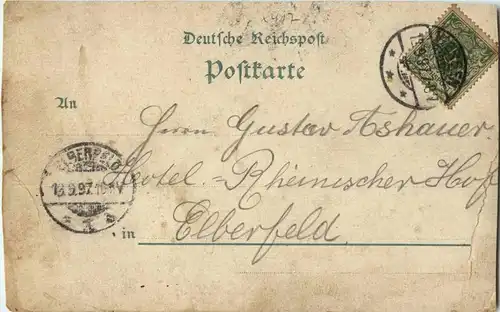 Deutsche Reichspost
Postkarte
An
Herrn Gustav Ashauer.
Hotel-Rheinischer Hof
in Elberfeld.
ELBERFELD
13.9.97.